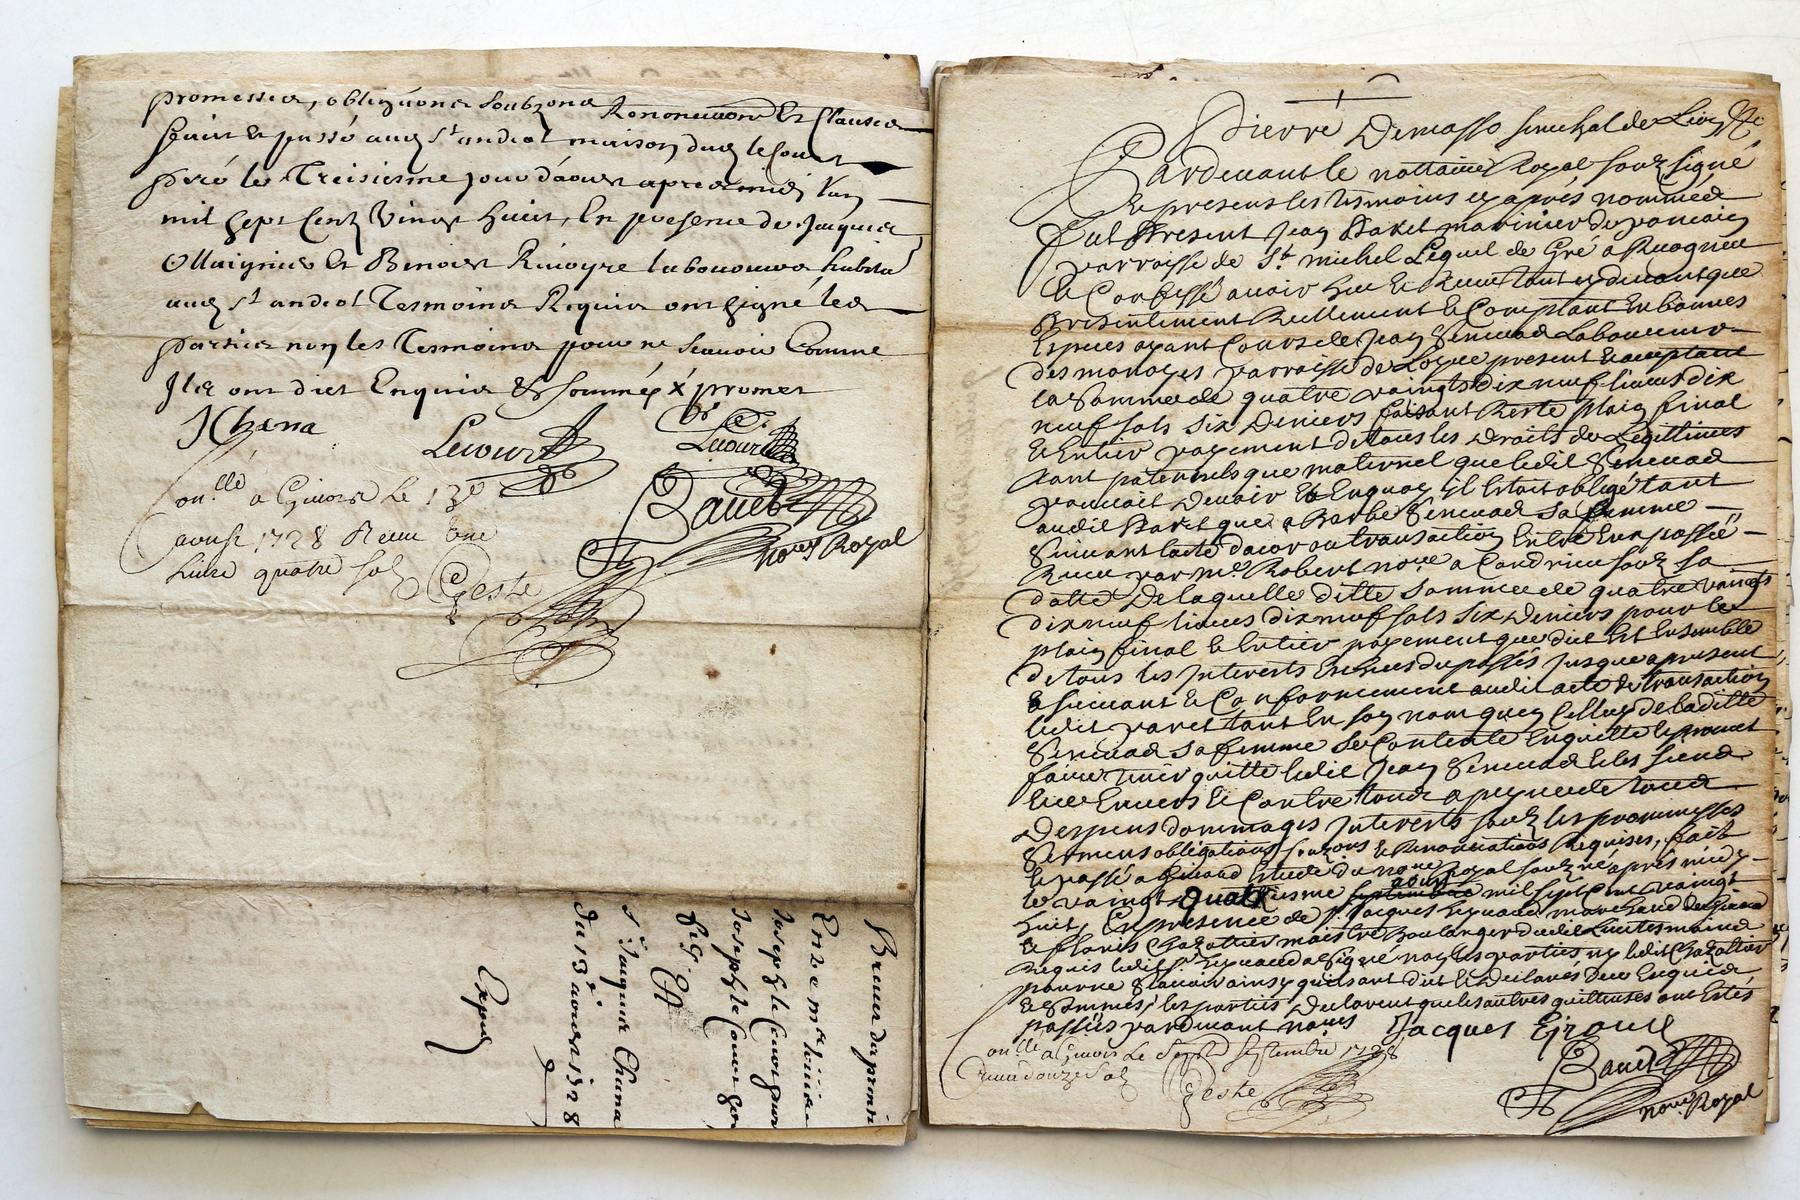 promesses, obligations soubzons Renonciations Et Clauses
faict et passé aud St andiol maison dud lecourt
peré le Treisiesme jour d'aoust apres midy l'an
mil sept Centz Vingt huict, En presence de Jacques
et Benoist Rivoyre laboureurs habita
aud St andiol Tesmoins Requis ont signé les
parties non les Tesmoins pour ne scavoir Comme
Ils ont dict Enquis & sommés x promet
JChana Lecourt Lecourt
on.llé a Givors Le 13e
aoust 1728 Receu une
livre quatre sol Geste
Bauet
no.re Royal
Enze mre
Joseph le Court pour
Joseph le Court
sr Jacques Chana
du 13e aoust 1728
Expedié
Pierre Demasso senechal de Lion &c
Pardevant le nottaire Royal souz signé
Et presens les tesmoins cy aprés nommés
fut Present Jean Paret marinier de
parroisse de St michel Lequel de Gré a Recogneu
Et Confessé avoir heu et Receu tant cy devant que
Presentement Reellement et Comptant En bonnes
Especes ayant Cours de Jean Seneuad Laboureur
des parroisse de Loyre present et acceptant
la Somme de quatre vaingts dix neuf livres dix
neuf sols Six Deniers faisant Reste plain final
et Entier payement de tous les Droits de Legittimes
tant paternels que maternel que ledit Seneuad
pouvait Devoir et Enquoy il Estait obligé tant
audit Paret que a Barbe Seneuad Sa femme
Suivant lacte dacord ou transaction Entre Eux passé
Receu par me Robert nore a Condrieu souz Sa
datte De laquelle ditte Somme de quatre vaingts
dix neuf livres dix neuf sols Six Deniers pour le
plain final et Entier payement que dict Est Ensemble
de tous les Interests Escheus du passés Jusque a present
et suivant et Conformement audit acte de transaction
ledit paret tant En son nom quen Celluy de laditte
Seneuad Sa femme Se Contente Enquitte et promet
faire tenir quitte ledit Jean Seneuad et les siens
Envers et Contre tous a peyne de tous
Despens dommages Interests souz les prommesses
Sermens obligations souzons et Renonciations Requises, fait
et passé a Givors Estude du nore Royal souzne aprés midy
le vaingt quatriesme aoust mil sept Cent vaingt
huit, En presence de sr Jacques marchand de Givors
et Chazottier maistre Boulanger dudit Lieu tesmoins
Requis ledit sr a Signé non les parties ny ledit Chazottier
pour ne Scavoir ainsy quils ont dit et Declarés Deue Enquis
et Sommés, les parties Declarent que les autres quittances ont Estés
passées pardevant nous Jacques
on.llé a Givors Le Sept Septembre 1728
Receu douze Sols Geste
Bauet
nore Royal